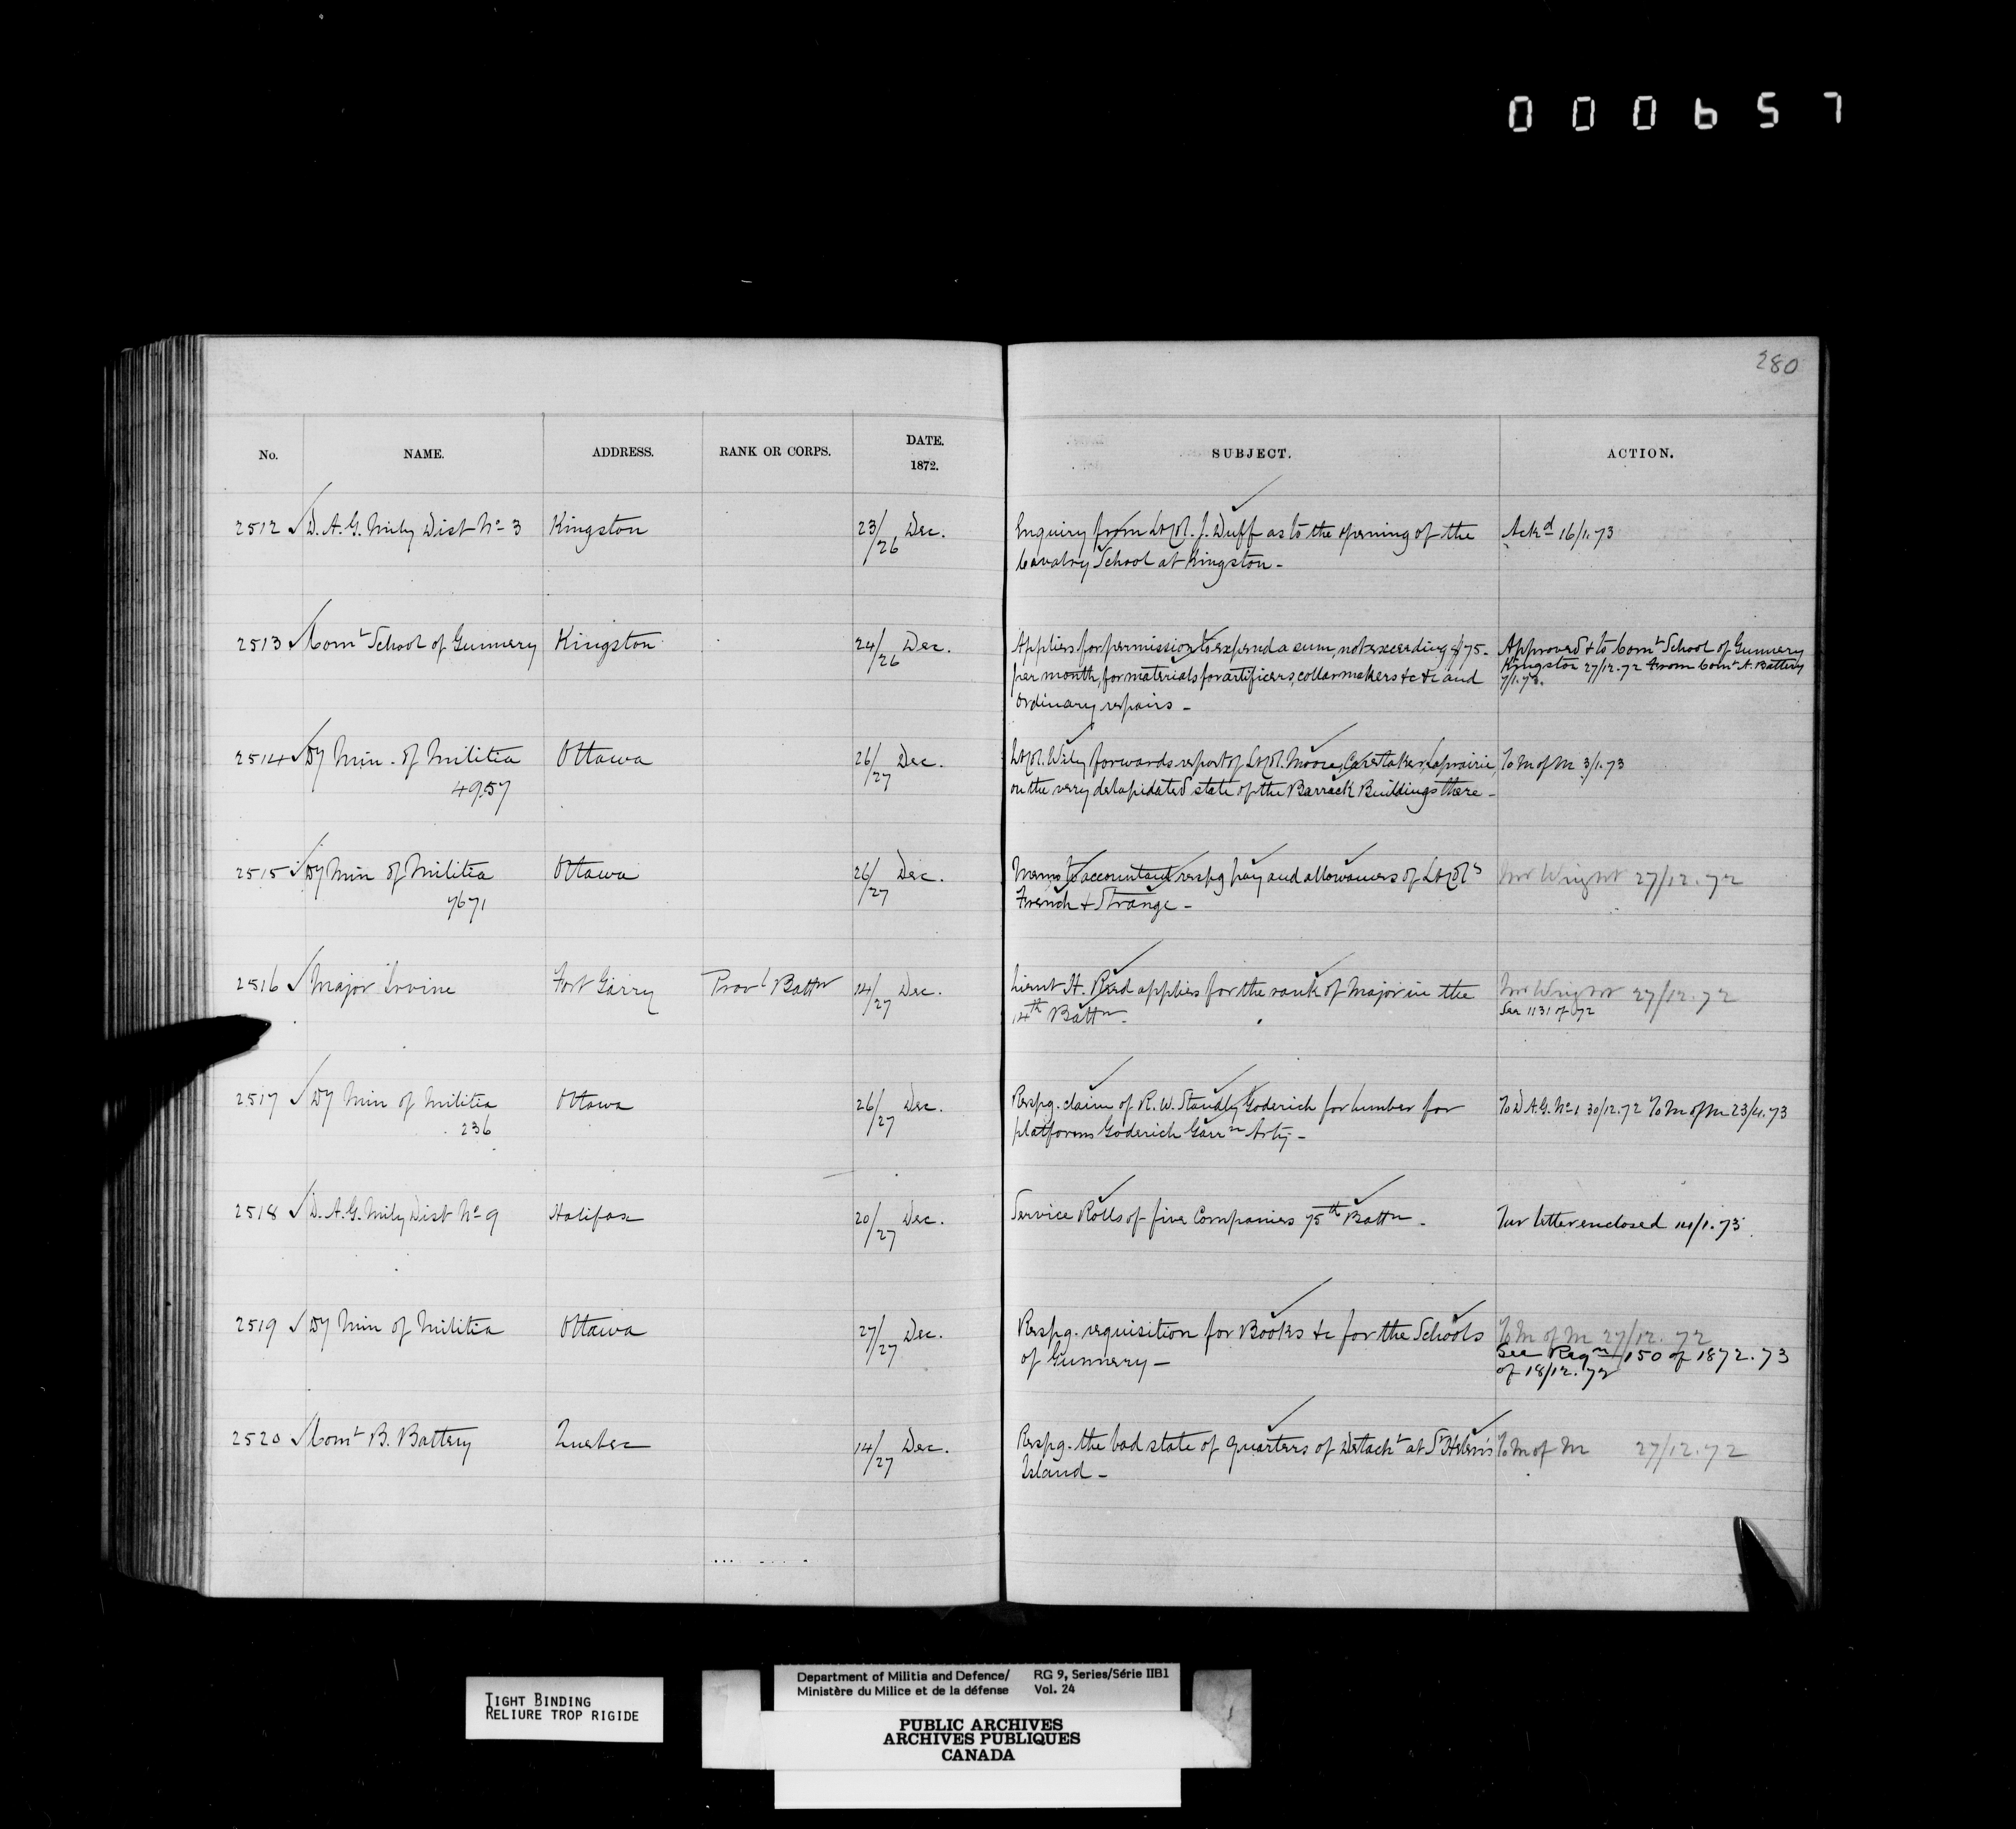 000657
280
No. NAME. ADDRESS. RANK OR CORPS. DATE. 1872. SUBJECT. ACTION.
2512 D.A.G. Mily Dist No 3 Kingston 23/26 Dec. Enquiry from Lt Col. J. Duff as to the opening of the Ackd 16/1.73
Cavalry School at Kingston -
2513 Comt School of Gunnery Kingston 24/26 Dec. Applies for permission to expend a sum, not exceeding $75. Approved & to Comt School of Gunnery
per month, for materials for artificers, collarmakers &c &c and Kingston 27/12.72 From Comt A. Battery
ordinary repairs -
2514 Dy Min. of Militia Ottawa 26/27 Dec. Lt Col. Wily forwards report of Lt Col. Moore, Caretaker, Laprairie, To M of M 3/1.73
4957 on the very delapidated state of the Barrack Buildings there -
2515 Dy Min of Militia Ottawa 26/27 Dec. Memo to accountant respg pay and allowances of Lt Cols Mr Wright 27/12.72
7671 French & Strange -
2516 Major Irvine Fort Garry Provl Battn 14/27 Dec. Lieut H. Reed applies for the rank of Major in the Mr Wright 27/12.72
14th Battn. See 1131 of 72
2517 Dy Min of Militia Ottawa 26/27 Dec. Respg. claim of R.W. Standly Goderich for lumber for To D.A.G. No 1 30/12.72 To M of M 23/4.73
236 platforms Goderich Garrn Arty -
2518 D.A.G. Mily Dist No 9 Halifax 20/27 Dec. Service Rolls of five Companies 75th Battn. letter enclosed 14/1.73.
2519 Dy Min of Militia Ottawa 27/27 Dec. Respg. requisition for Books &c for the Schools To M of M 27/12.72
of Gunnery - See Reqn 150 of 1872.73
of 18/12.72
2520 Comt B. Battery Quebec 14/27 Dec. Respg. the bad state of quarters of Detacht at St Helen's To M of M 27/12.72
Island -
TIGHT BINDING
RELIURE TROP RIGIDE
Department of Militia and Defence/ RG 9, Series/Série IIB1
Ministère du Milice et de la défense Vol. 24
PUBLIC ARCHIVES
ARCHIVES PUBLIQUES
CANADA